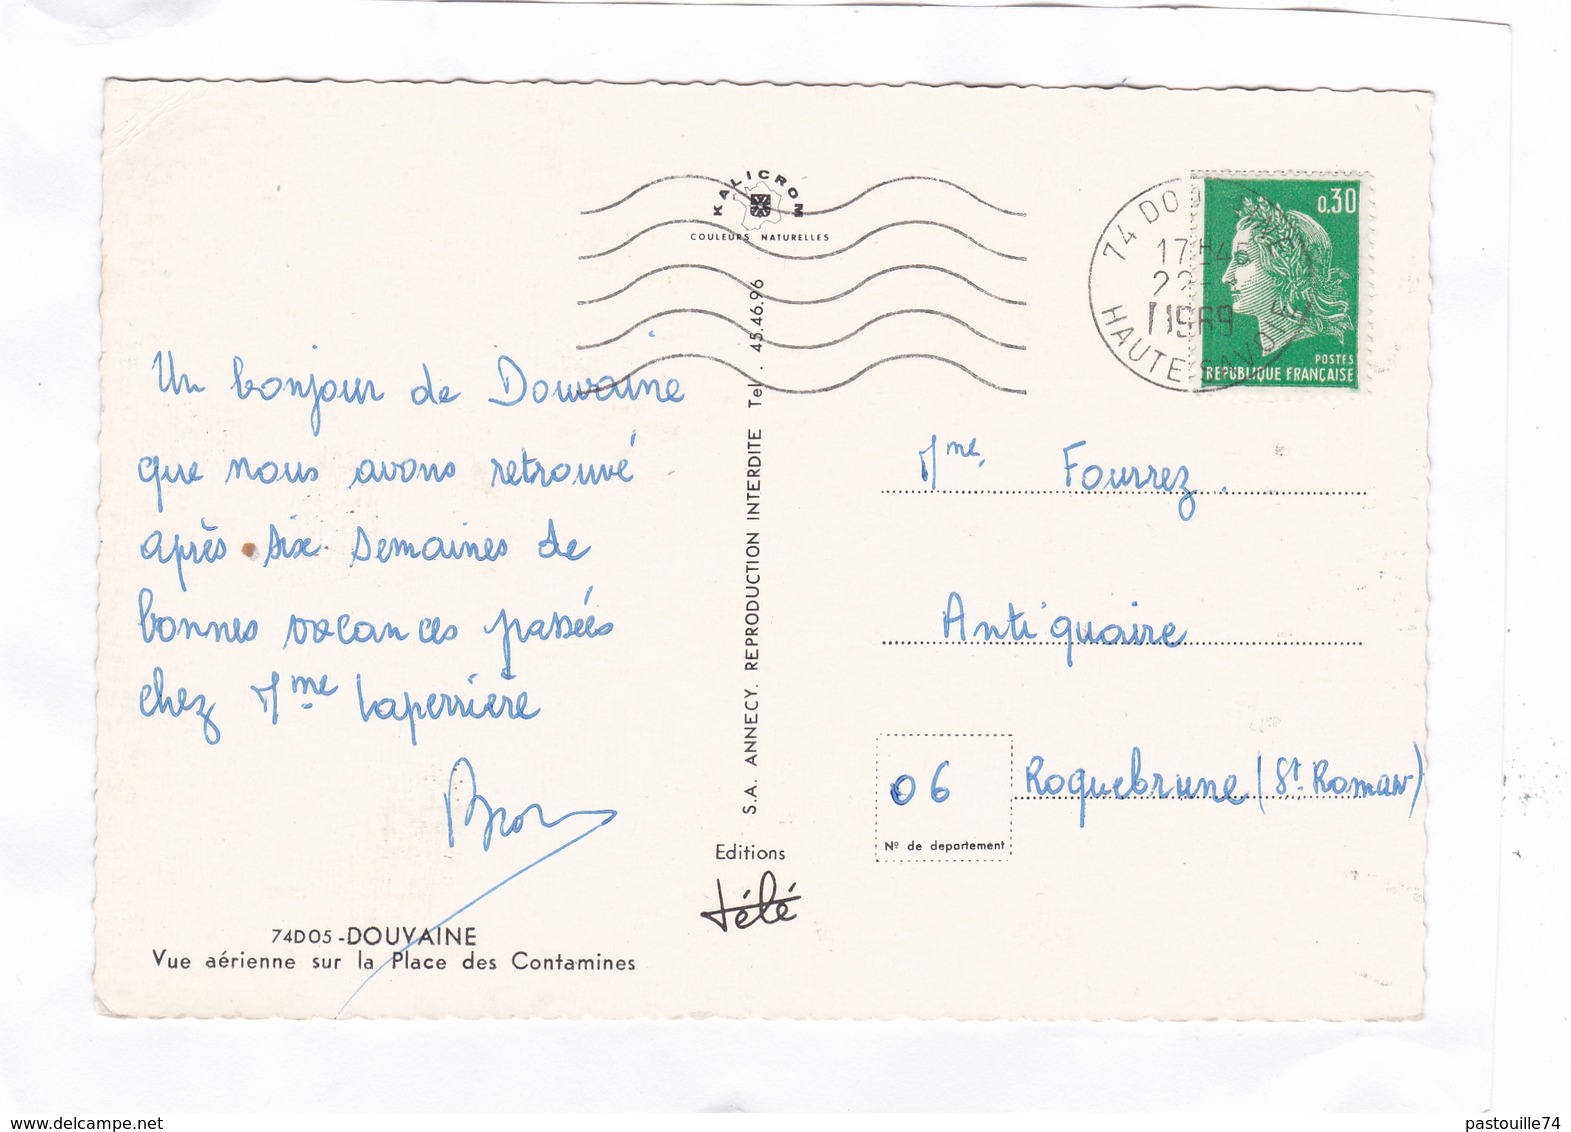 KALICROM
COULEURS NATURELLES
Un bonjour de Douvaine
que nous avons retrouvé
après six semaines de
bonnes vacances passées
chez Mme Laperrière
74D05 - DOUVAINE
Vue aérienne sur la Place des Contamines
S.A. ANNECY. REPRODUCTION INTERDITE Tel. 45.46.96
Editions
télé
74 DO
17H45
22
1969
HAUTE SAVOIE
0,30
POSTES
REPUBLIQUE FRANÇAISE
Mme. Fourrez.
Antiquaire
06 Roquebrune (St. Roman)
Nº de departement
delcampe.net
pastouille74